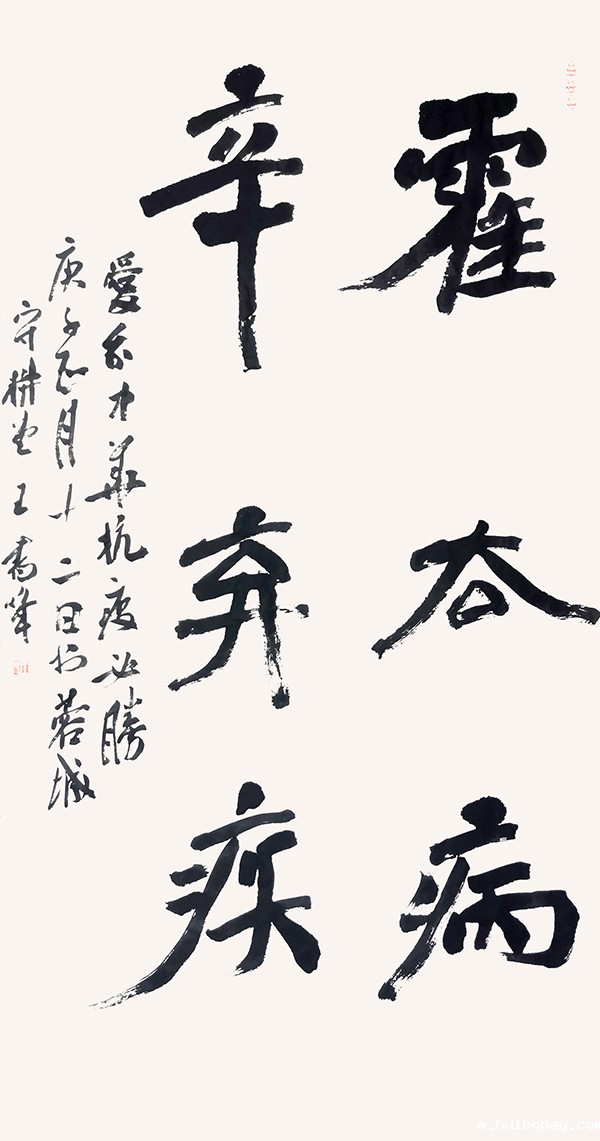 霍去病
辛弃疾
愛我中華抗疫必勝
庚子正月十二日於蓉城
守耕堂王
m.huibopay.com